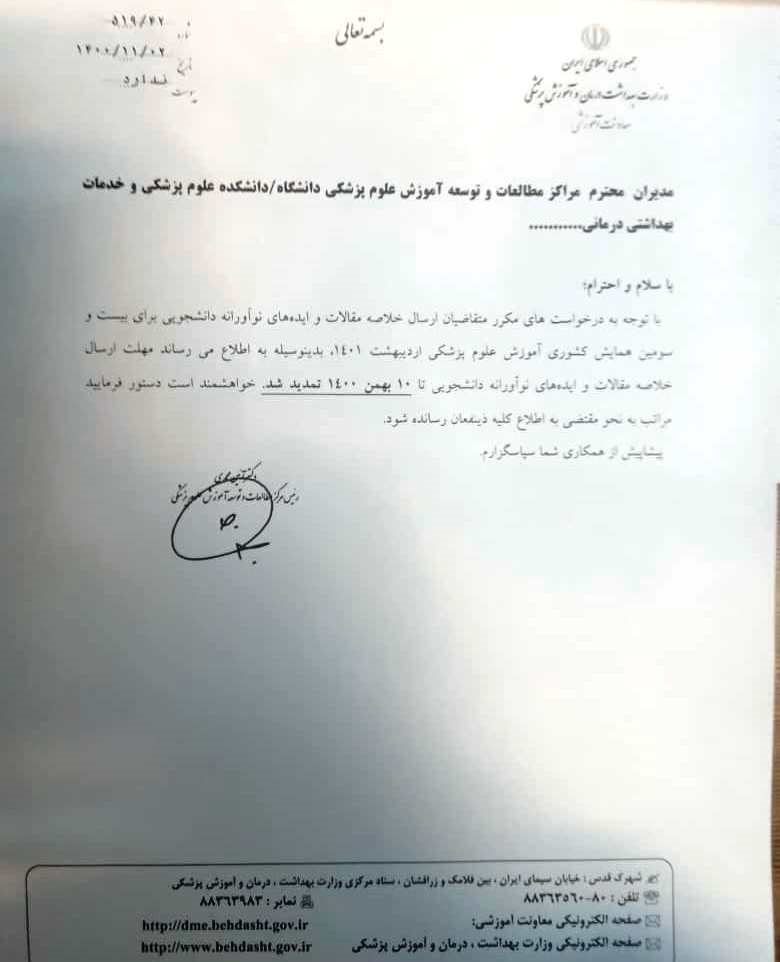 بسمه تعالی
جمهوری اسلامی ایران
وزارت بهداشت، درمان و آموزش پزشکی
معاونت آموزشی
شماره ۵۱۹/۴۲
تاریخ ۱۴۰۰/۱۱/۰۲
پیوست ندارد
مدیران محترم مراکز مطالعات و توسعه آموزش علوم پزشکی دانشگاه/دانشکده علوم پزشکی و خدمات
بهداشتی درمانی...........
با سلام و احترام؛
با توجه به درخواست های مکرر متقاضیان ارسال خلاصه مقالات و ایده‌های نوآورانه دانشجویی برای بیست و
سومین همایش کشوری آموزش علوم پزشکی اردیبهشت ۱۴۰۱، بدینوسیله به اطلاع می رساند مهلت ارسال
خلاصه مقالات و ایده‌های نوآورانه دانشجویی تا ۱۰ بهمن ۱۴۰۰ تمدید شد. خواهشمند است دستور فرمایید
مراتب به نحو مقتضی به اطلاع کلیه ذینفعان رسانده شود.
پیشاپیش از همکاری شما سپاسگزارم.
دکتر
رئیس مرکز مطالعات و توسعه آموزش علوم پزشکی
شهرک قدس : خیابان سیمای ایران ، بین فلامک و زرافشان ، ستاد مرکزی وزارت بهداشت ، درمان و آموزش پزشکی
تلفن : ۸۰-۸۸۳۶۳۵۶۰ نمابر : ۸۸۳۶۳۹۸۳
صفحه الکترونیکی معاونت آموزشی: http://dme.behdasht.gov.ir
صفحه الکترونیکی وزارت بهداشت ، درمان و آموزش پزشکی http://www.behdasht.gov.ir